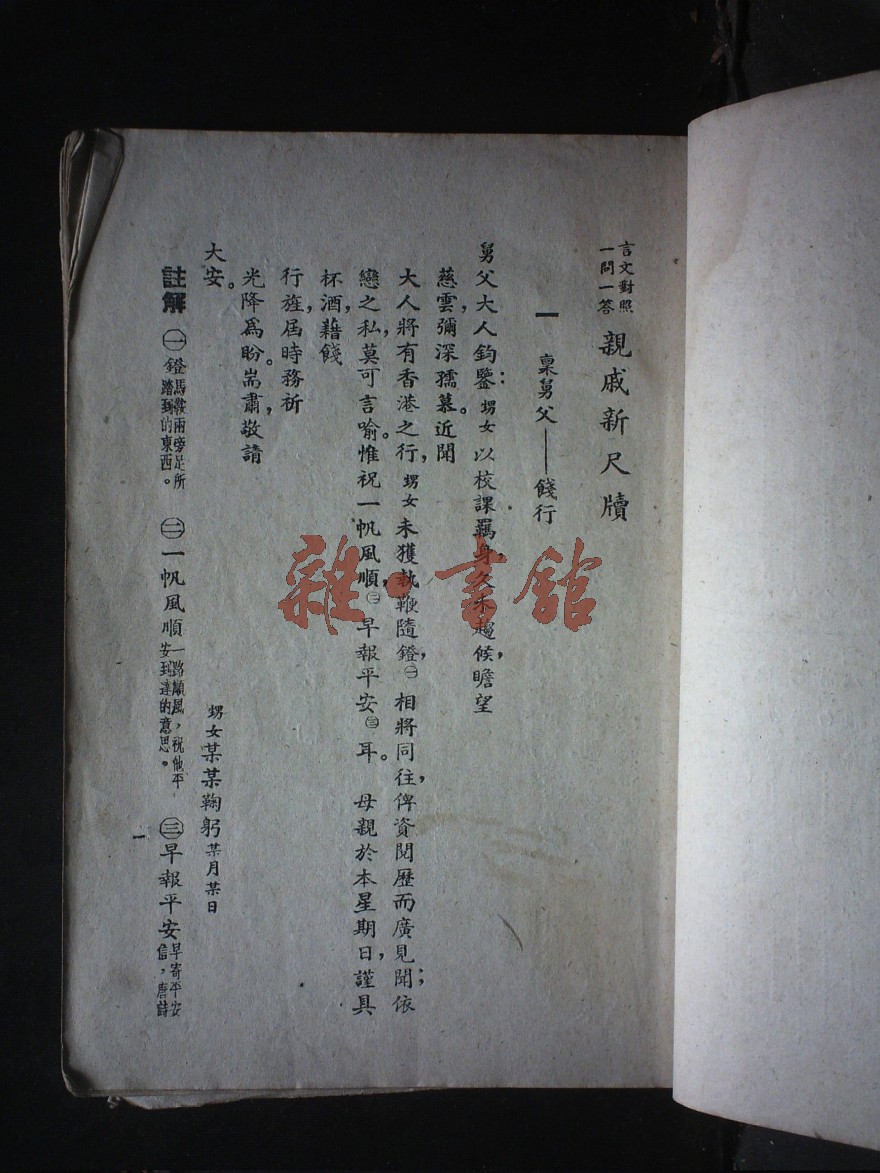 言文對照
一問一答
親戚新尺牘
一 稟舅父——餞行
舅父大人鈞鑒：甥女以校課羈身，久未趨候，瞻望
慈雲，彌深孺慕。近聞
大人將有香港之行，甥女未獲執鞭隨鐙㊀，相將同往，俾資閱歷而廣見聞；依
戀之私，莫可言喻。惟祝一帆風順㊁，早報平安㊂耳。 母親於本星期日，謹具
杯酒，藉餞
行旌，屆時務祈
光降爲盼。耑肅，敬請
大安。
甥女某某鞠躬 某月某日
註解 ㊀鐙 馬鞍兩旁足所踏到的東西。 ㊁一帆風順 一路順風，祝他平安到達的意思。 ㊂早報平安 早寄平安信，唐詩
一
雜·書館